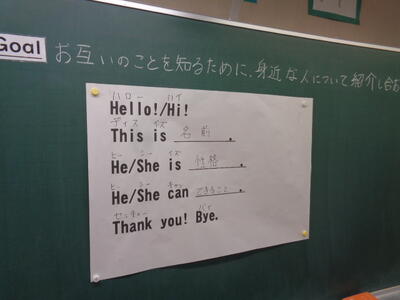 Goal お互いのことを知るために、身近な人について紹介し合お
ハロー ハイ
Hello!/Hi!
ディス イズ
This is 名前.
ヒー シー イズ
He/She is 性格.
ヒー シー キャン
He/She can できること.
センキュー バイ
Thank you! Bye.